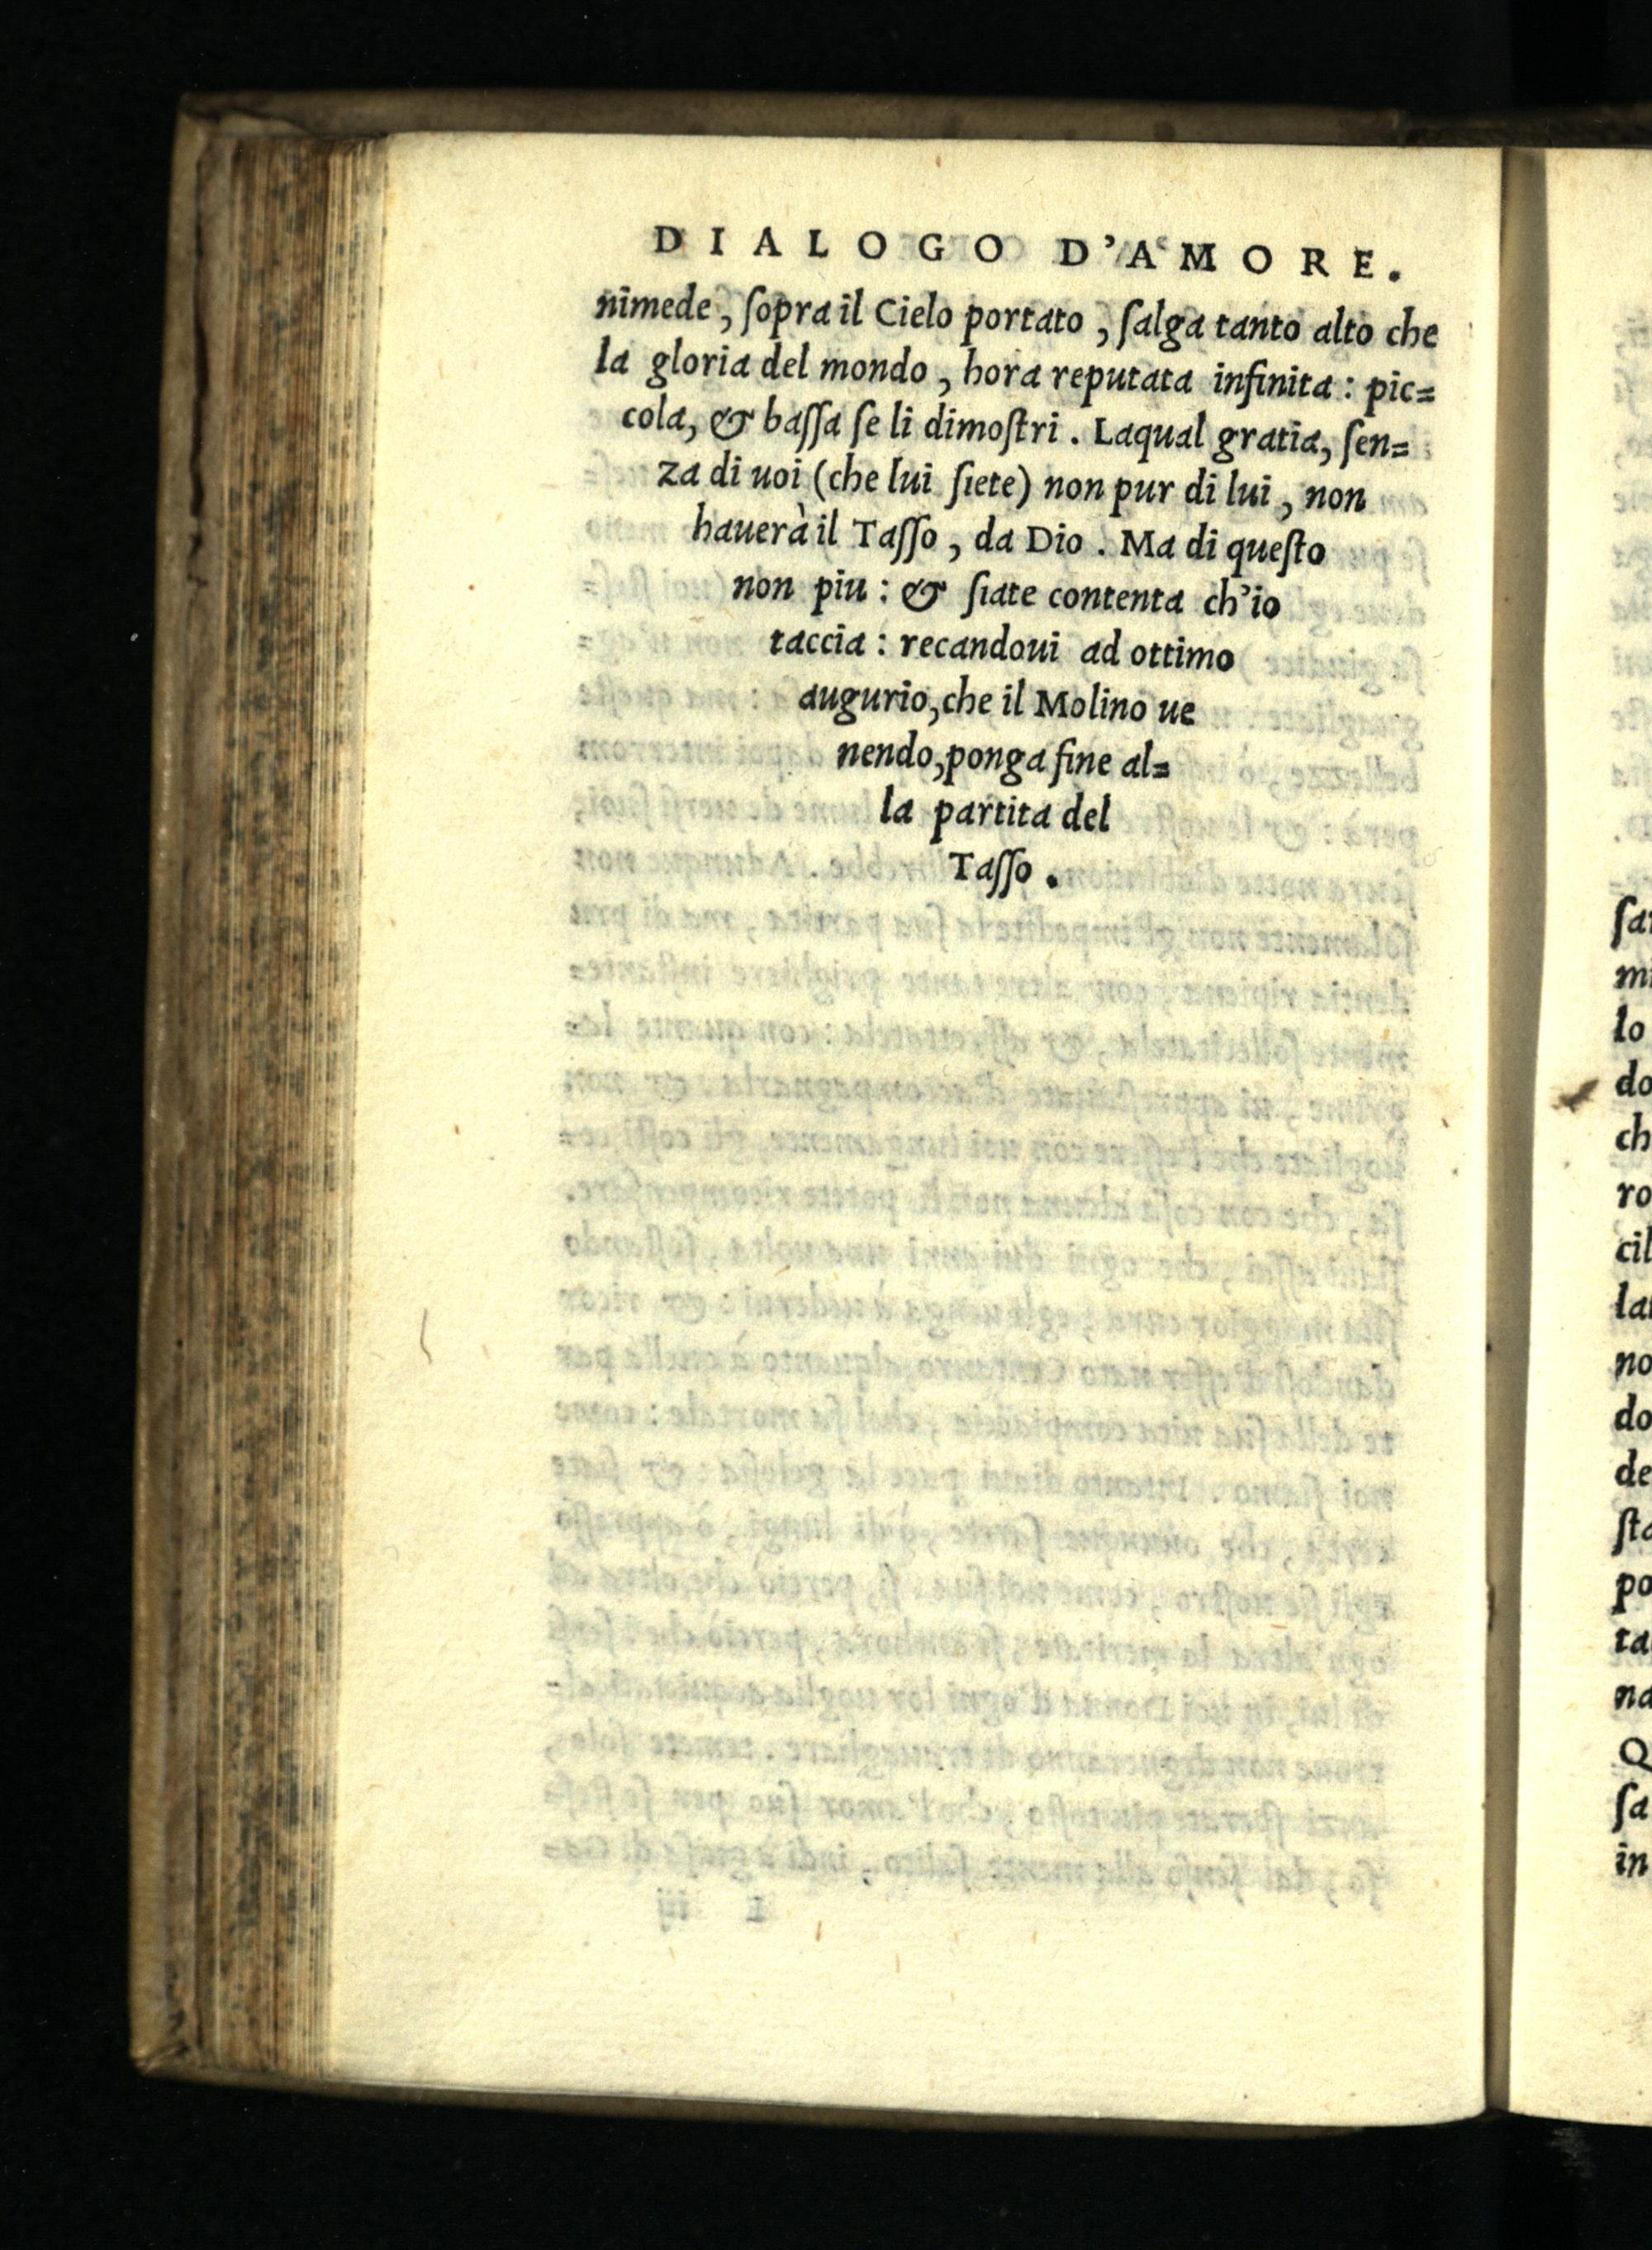 DIALOGO D'AMORE.
nimede, ſopra il Cielo portato, ſalga tanto alto che
la gloria del mondo, hora reputata infinita: pic=
cola, & baſſa ſe li dimoſtri. Laqual gratia, ſen=
za di uoi (che lui ſiete) non pur di lui, non
hauerà il Taſſo, da Dio. Ma di queſto
non piu: & ſiate contenta ch'io
taccia: recandoui ad ottimo
augurio, che il Molino ue
nendo, ponga fine al=
la partita del
Taſſo.
lo
do
ch
ro
cil
no
do
de
ſta
po
ta
ſa
in